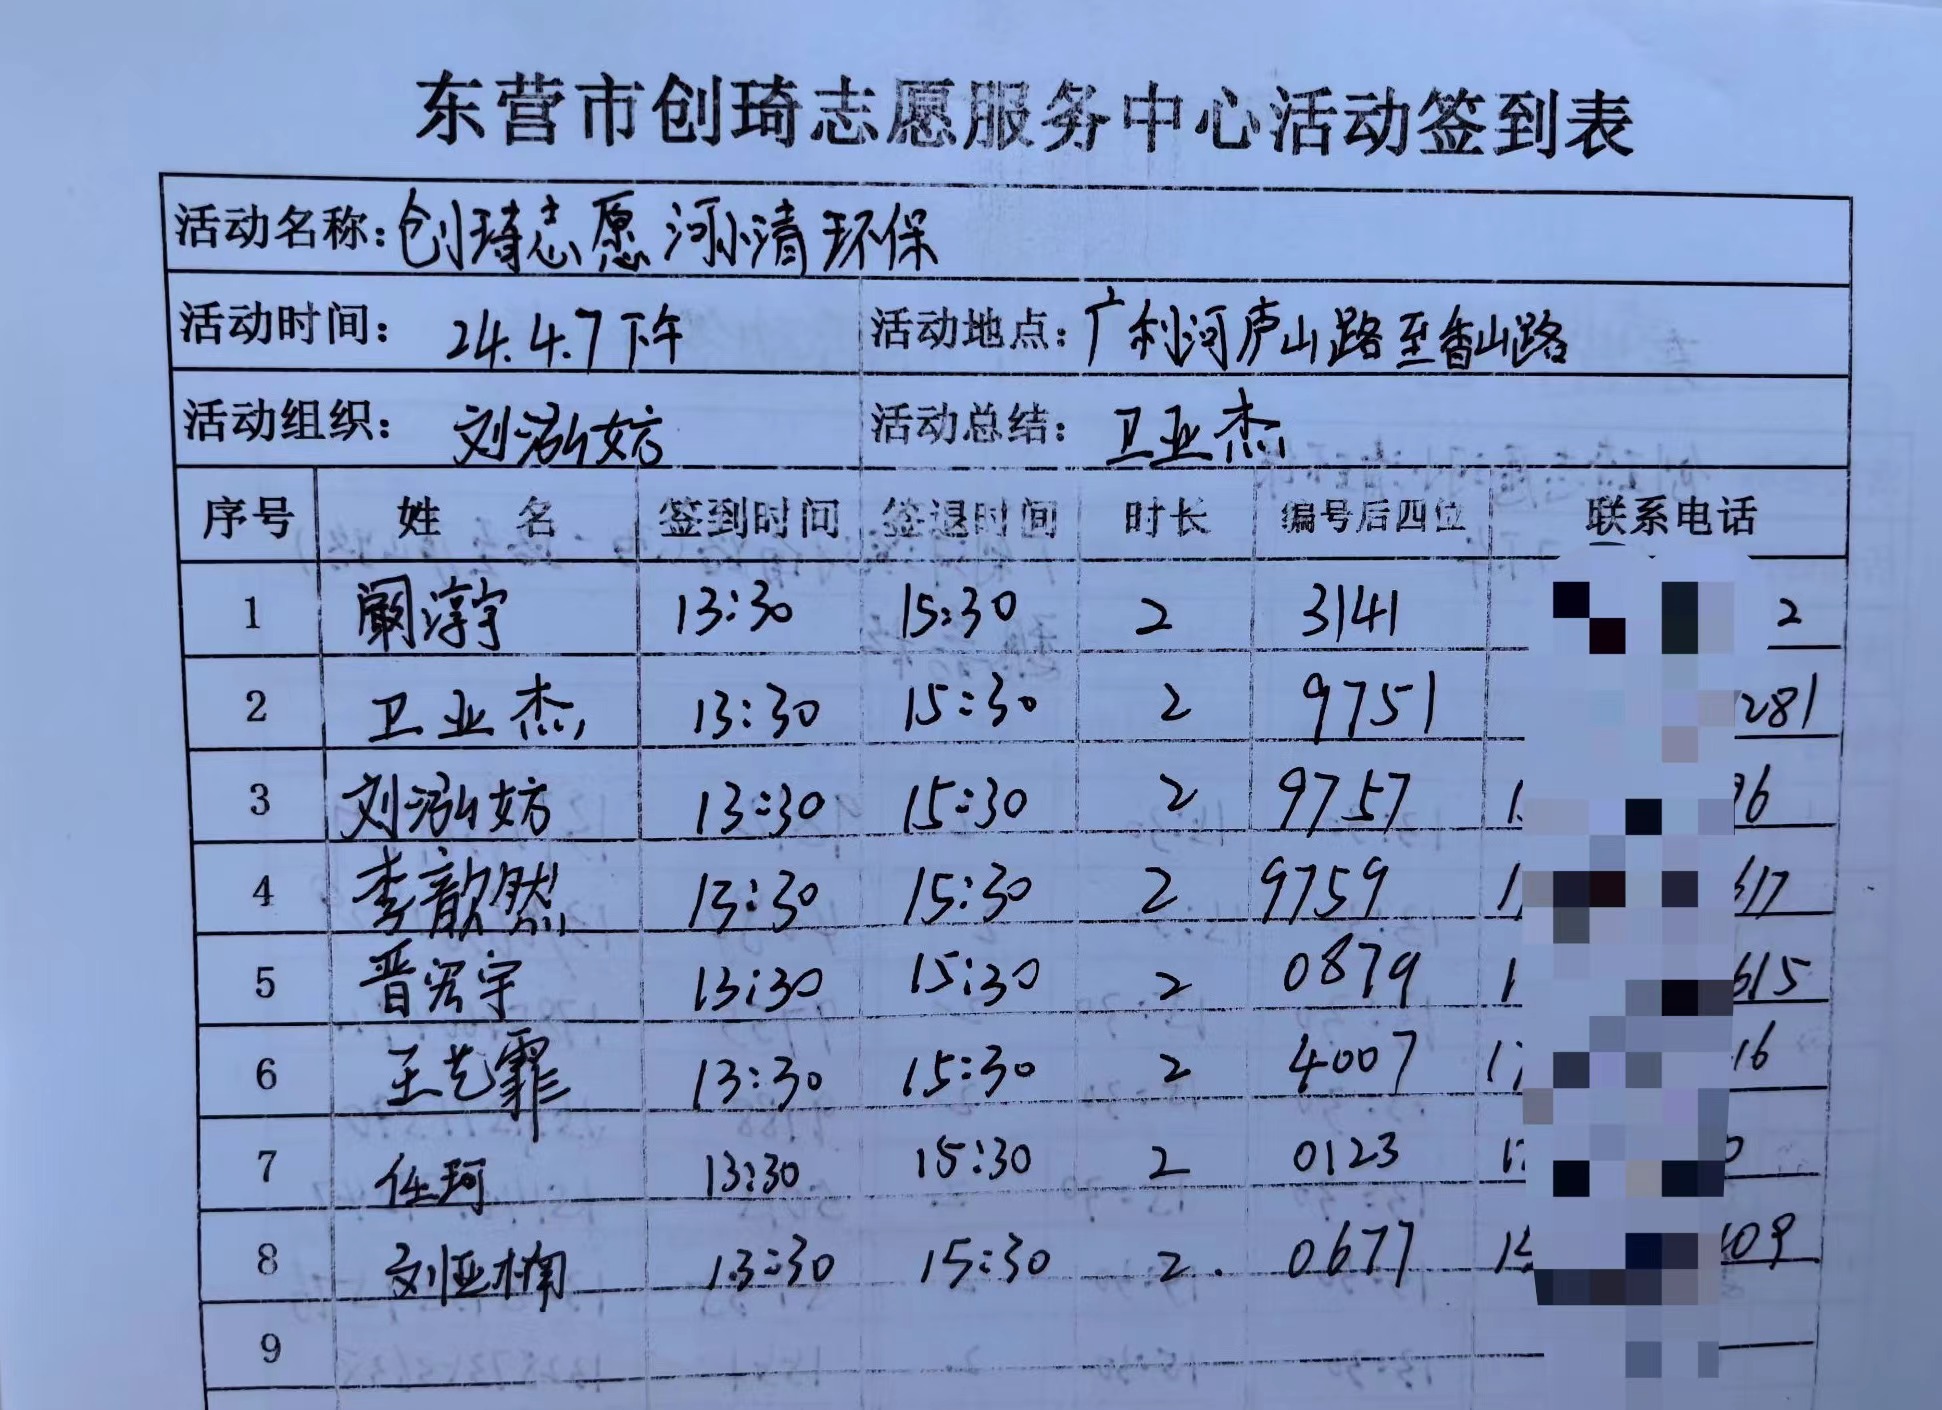 东营市创琦志愿服务中心活动签到表
活动名称:创琦志愿河小清环保
活动时间: 24.4.7下午 活动地点:广利河庐山路至香山路
活动组织: 刘泓妨 活动总结: 卫亚杰
序号 姓 名 签到时间 签退时间 时长 编号后四位 联系电话
1 阚淳宇 13:30 15:30 2 3141 2
2 卫亚杰 13:30 15:30 2 9751 281
3 刘泓妨 13:30 15:30 2 9757 1 6
4 李歆然 13:30 15:30 2 9759 1 617
5 晋宏宇 13:30 15:30 2 0879 1 615
6 王艺霏 13:30 15:30 2 4007 17 16
7 任珂 13:30 15:30 2 0123 1 0
8 刘亚楠 13:30 15:30 2. 0677 15 409
9